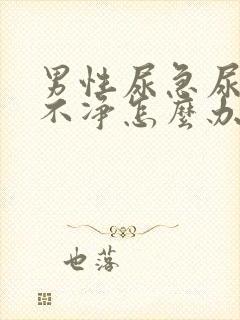 男性尿急尿
不净怎麽办
也落